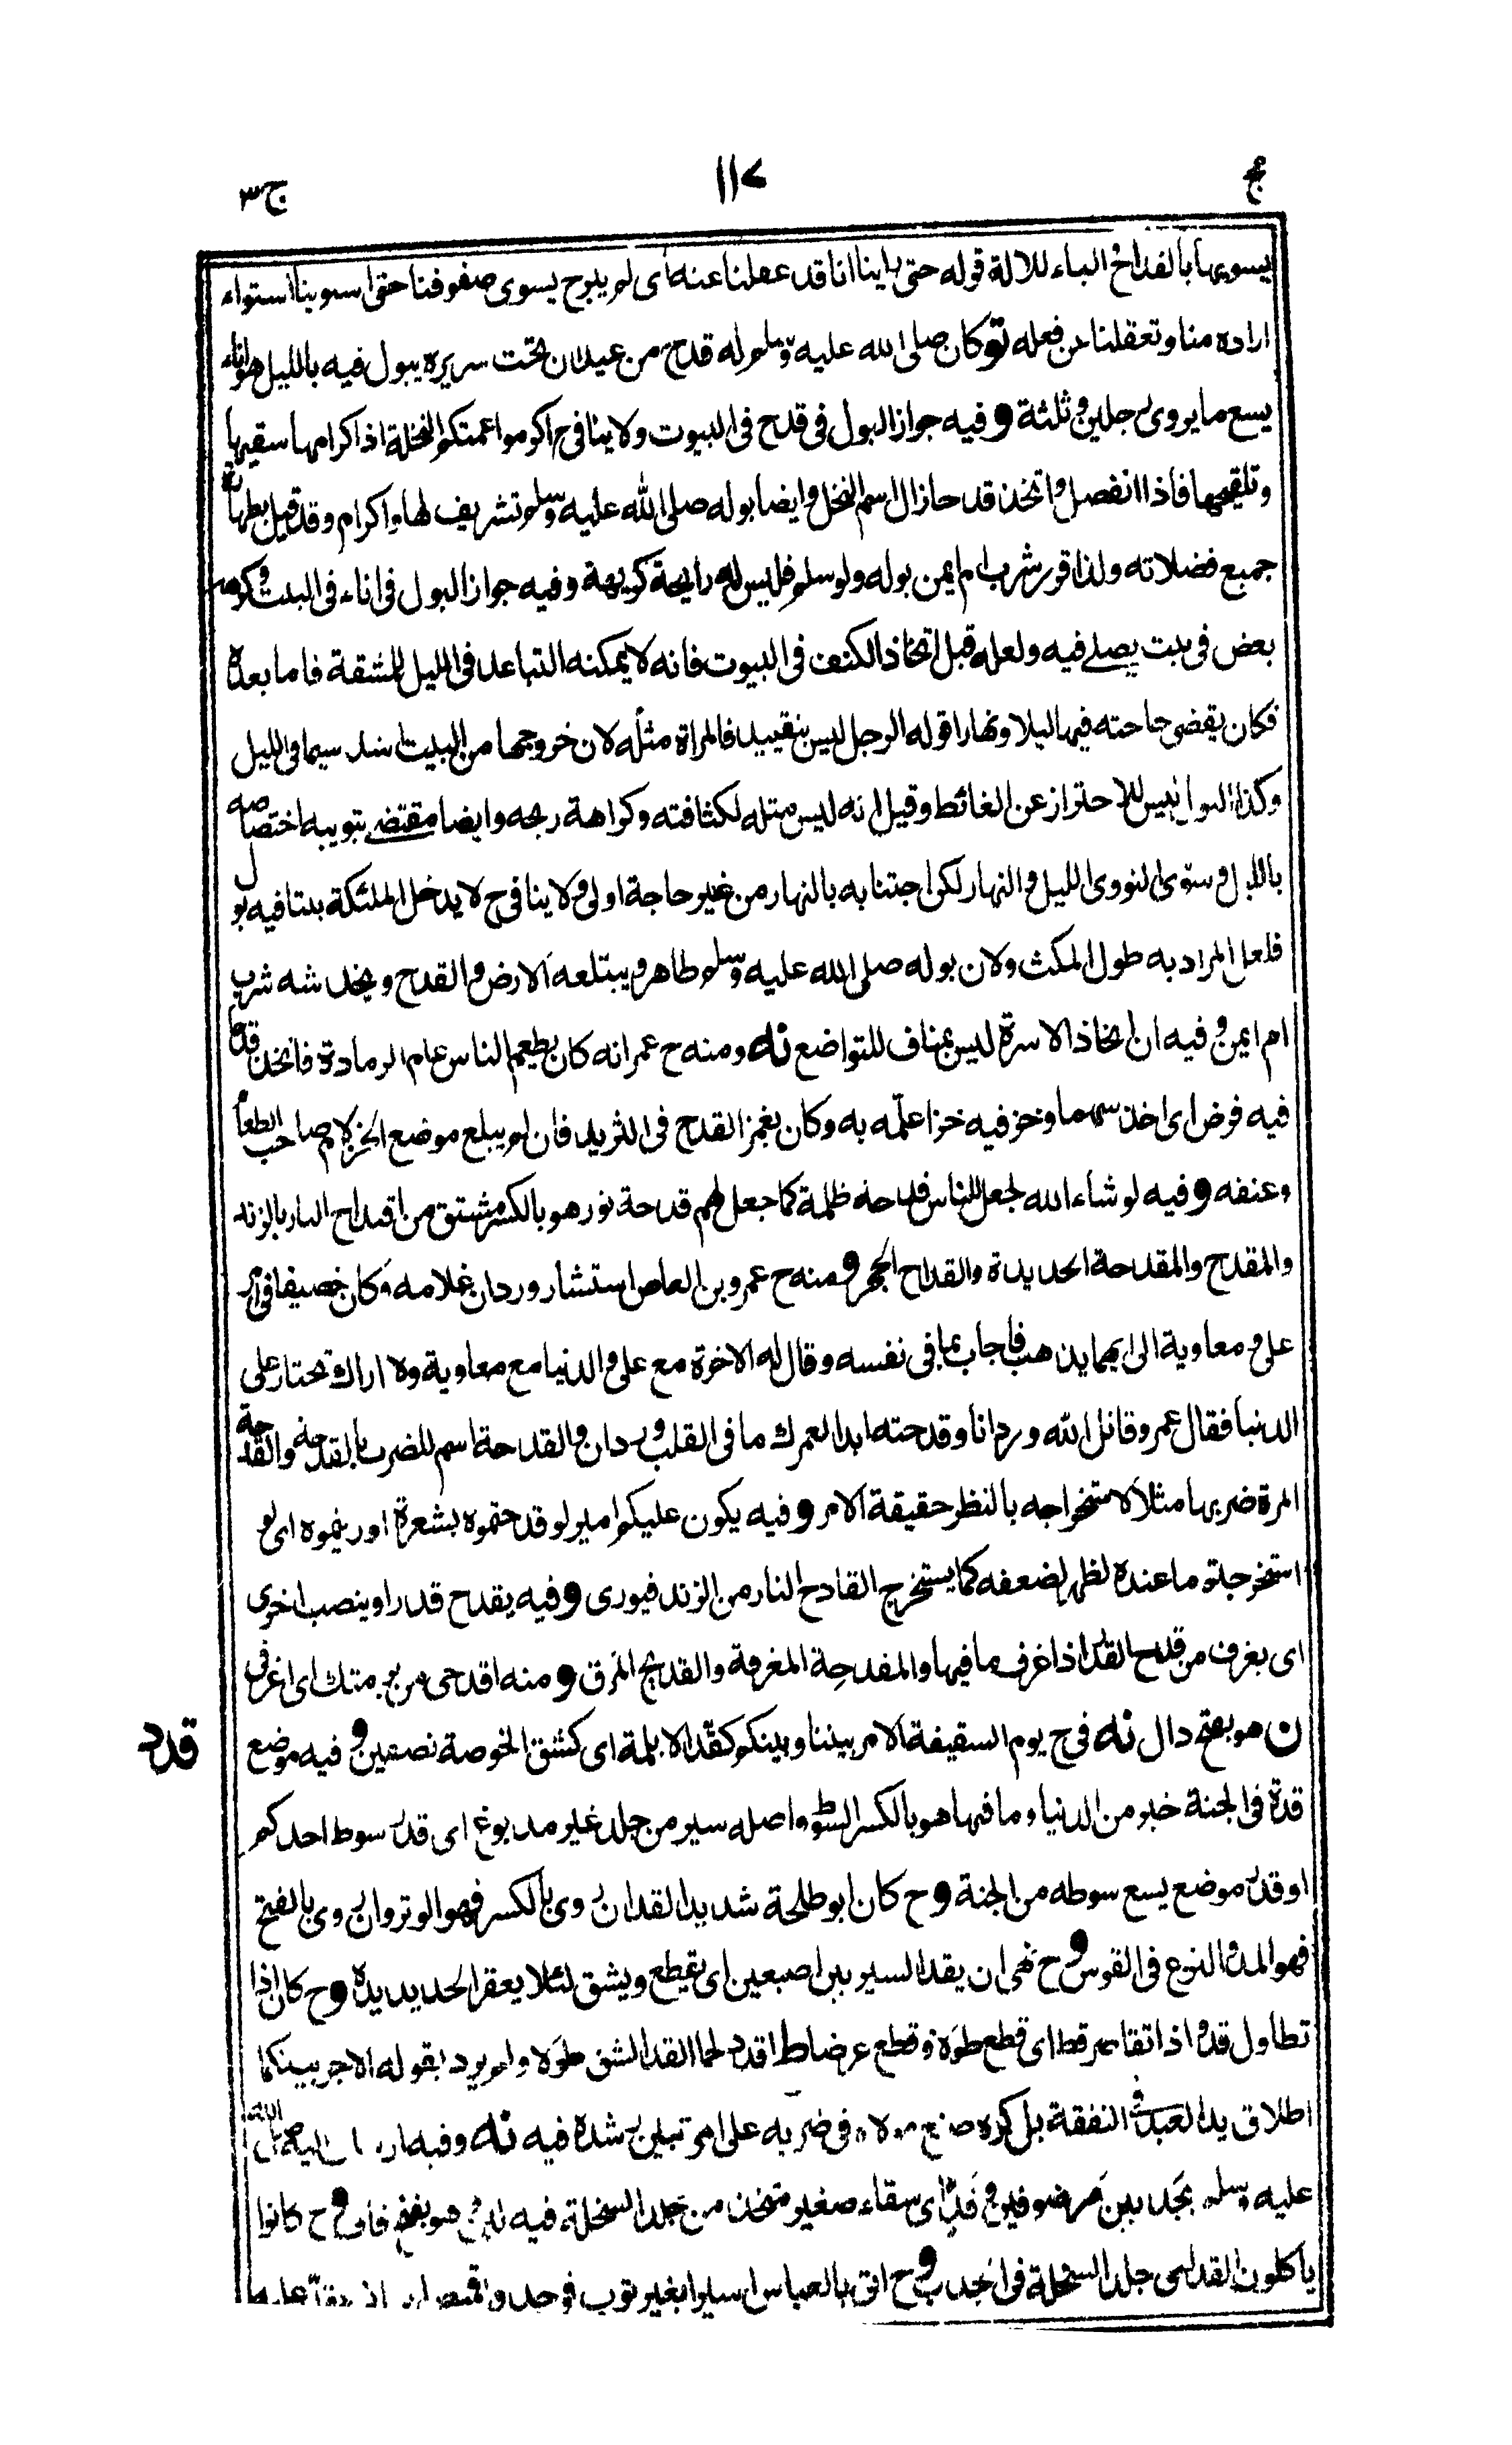 مج ١١٧ ج٣
يسويها بالقداح الباء للالة قوله حتى راينا انا قد عقلنا عنه اى لم يبرح يسوى صفوفنا حتى استوينا استواء
اراده منا وتعقلنا عن فعله تو كان صلى الله عليه وسلم له قدح من عيدان تحت سريره يبول فيه بالليل هو اناء
يسع ما يروى رجلين وثلثة و فيه جواز البول فى قدح فى البيوت ولا ينافى ح اكرموا عمتكم النخلة اذ اكرامها سقيها
وتلقيحها فاذا انفصل واتخذ قدحا زال اسم النخل وايضا بوله صلى الله عليه وسلم تشريف لها واكرام وقد قيل بطهارة
جميع فضلاته ولذا قرر شرب ام ايمن بوله ولو سلم فليس له رايحة كريهة وفيه جواز البول فى اناء فى البيت وكرهه
بعض فى بيت يصلے فيه ولعله قبل اتخاذ الكنف فى البيوت فانه لا يمكنه التباعد فى الليل للمشقة فاما بعده
فكان يقضى حاجته فيها ليلا ونهارا قوله الرجل ليس بتقييد فالمراة مثله لان خروجها من البيت اشد سيما فى الليل
وكذا البول ليس للاحتراز عن الغائط وقيل انه ليس مثله لكثافته وكراهة ريحه وايضا مقتضى تبويبه اختصاصه
بالليل وسوى النووى الليل والنهار لكن اجتنابه بالنهار من غير حاجة اولى ولا ينافى ح لا يدخل الملئكة بيتا فيه بول
فلعل المراد به طول المكث ولان بوله صلى الله عليه وسلم طاهر ويبتلعه الارض والقدح ويخدشه شرب
ام ايمن وفيه ان اتخاذ الاسرة ليس بمناف للتواضع نه ومنه ح عمر انه كان يطعم الناس عام الرمادة فاتخذ قدحا
فيه فرض اى اخذ سهما وحز فيه حزا علّمه به وكان يغمز القدح فى الثريد فان لم يبلغ موضع الحز لام صاحب الطعام
وعنفه و فيه لو شاء الله لجعل للناس قدحة ظلمة كما جعل لهم قدحة نور هو بالكسر مشتق من اقتداح النار بالزند
والمقدح والمقدحة الحديدة والقداح الحجر و منه ح عمرو بن العاص استشار وردان غلامه وكان خصيفا فى امر
على ومعاوية الى ايهما يذهب فاجاب بما فى نفسه وقال له الاخرة مع على والدنيا مع معاوية ولا اراك تختار على
الدنيا فقال عمرو قاتل الله وردانا وقدحته ابدا لعمرك ما فى القلب وردان والقدحة اسم للضرب بالمقدحة والقدحة
المرة ضربها مثلا لاستخراجه بالنظر حقيقة الامر و فيه يكون عليكم امير لو قدحتموه بشعرة اوريتموه اى لو
استخرجتم ما عنده لظهر لضعفه كما يستخرج القادح النار من الزند فيورى و فيه يقدح قدرا وينصب اخرى
اى يغرف من قدح القدر اذا غرف ما فيها والمقدحة المغرفة والقديح المرق و منه اقدحى من برمتك اى اغرفى
ن هو بفتح دال نه فى ح يوم السقيفة الامر بيننا وبينكم كقدّ الابلمة اى كشق الخوصة نصفين و فيه موضع
قدد
قدة فى الجنة خير من الدنيا وما فيها هو بالكسر السوط واصله سير من جلد غير مدبوغ اى قدر سوط احدكم
او قدر موضع يسع سوطه من الجنة و ح كان ابو طلحة شديد القد ان روى بالكسر فهو الوتر وان روى بالفتح
فهو المد والنزع فى القوس و ح نهى ان يقد السير بين اصبعين اى يقطع ويشق لئلا يعقر الحديد يده و ح كان اذا
تطاول قد واذا تقاصر قط اى قطع طولا وقطع عرضا ط اقدد لحما القد الشق طولا ولم يرد بقوله الاجر بينكما
اطلاق يد العبد فى النفقة بل كره صنع مولاه فى ضربه على امر تبين رشده فيه نه وفيه
عليه وسلم بجديين مرضوفين وقد اى سقاء صغير متخذ من جلد السخلة فيه لبن هو بفتح قاف و ح كانوا
ياكلون القد اى جلد السخلة فى الجدب و ح اتى بالعباس اسيرا بغير ثوب فوجدوا قميص